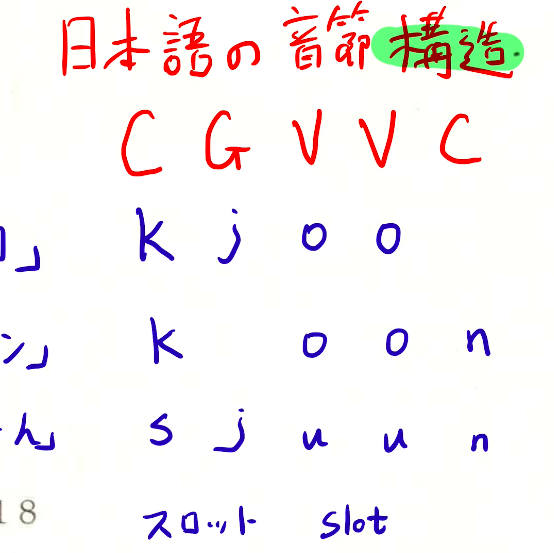 日本語の音節構造
C G V V C
」 k j o o
ン」 k o o n
ん」 s j u u n
18 スロット slot